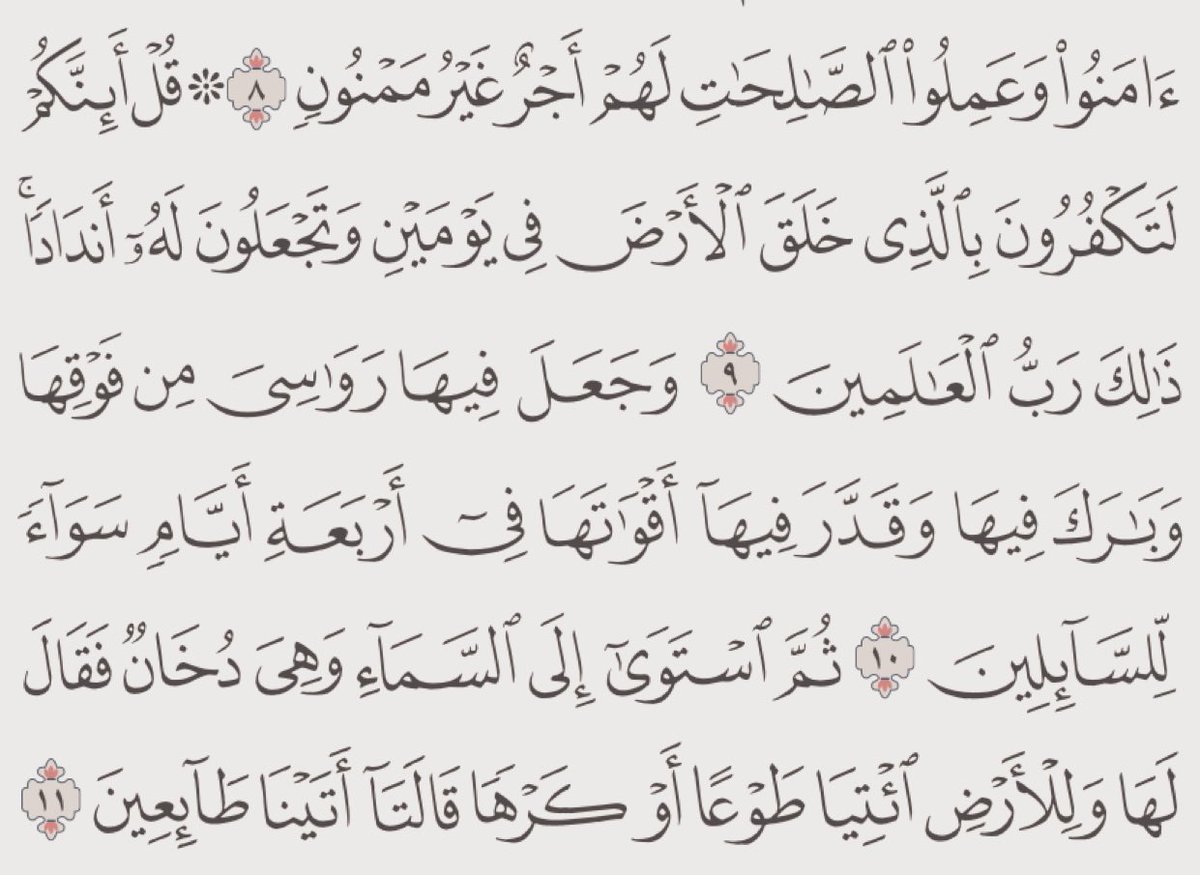 ءَامَنُوا۟ وَعَمِلُوا۟ ٱلصَّـٰلِحَـٰتِ لَهُمۡ أَجۡرٌ غَيۡرُ مَمۡنُونٍ ٨ ۞ قُلۡ أَئِنَّكُمۡ
لَتَكۡفُرُونَ بِٱلَّذِى خَلَقَ ٱلۡأَرۡضَ فِى يَوۡمَيۡنِ وَتَجۡعَلُونَ لَهُۥٓ أَندَادًاۚ
ذَٰلِكَ رَبُّ ٱلۡعَـٰلَمِينَ ٩ وَجَعَلَ فِيهَا رَوَٰسِىَ مِن فَوۡقِهَا
وَبَـٰرَكَ فِيهَا وَقَدَّرَ فِيهَآ أَقۡوَٰتَهَا فِىٓ أَرۡبَعَةِ أَيَّامٍ سَوَآءً
لِّلسَّآئِلِينَ ١٠ ثُمَّ ٱسۡتَوَىٰٓ إِلَى ٱلسَّمَآءِ وَهِىَ دُخَانٌ فَقَالَ
لَهَا وَلِلۡأَرۡضِ ٱئۡتِيَا طَوۡعًا أَوۡ كَرۡهًا قَالَتَآ أَتَيۡنَا طَآئِعِينَ ١١